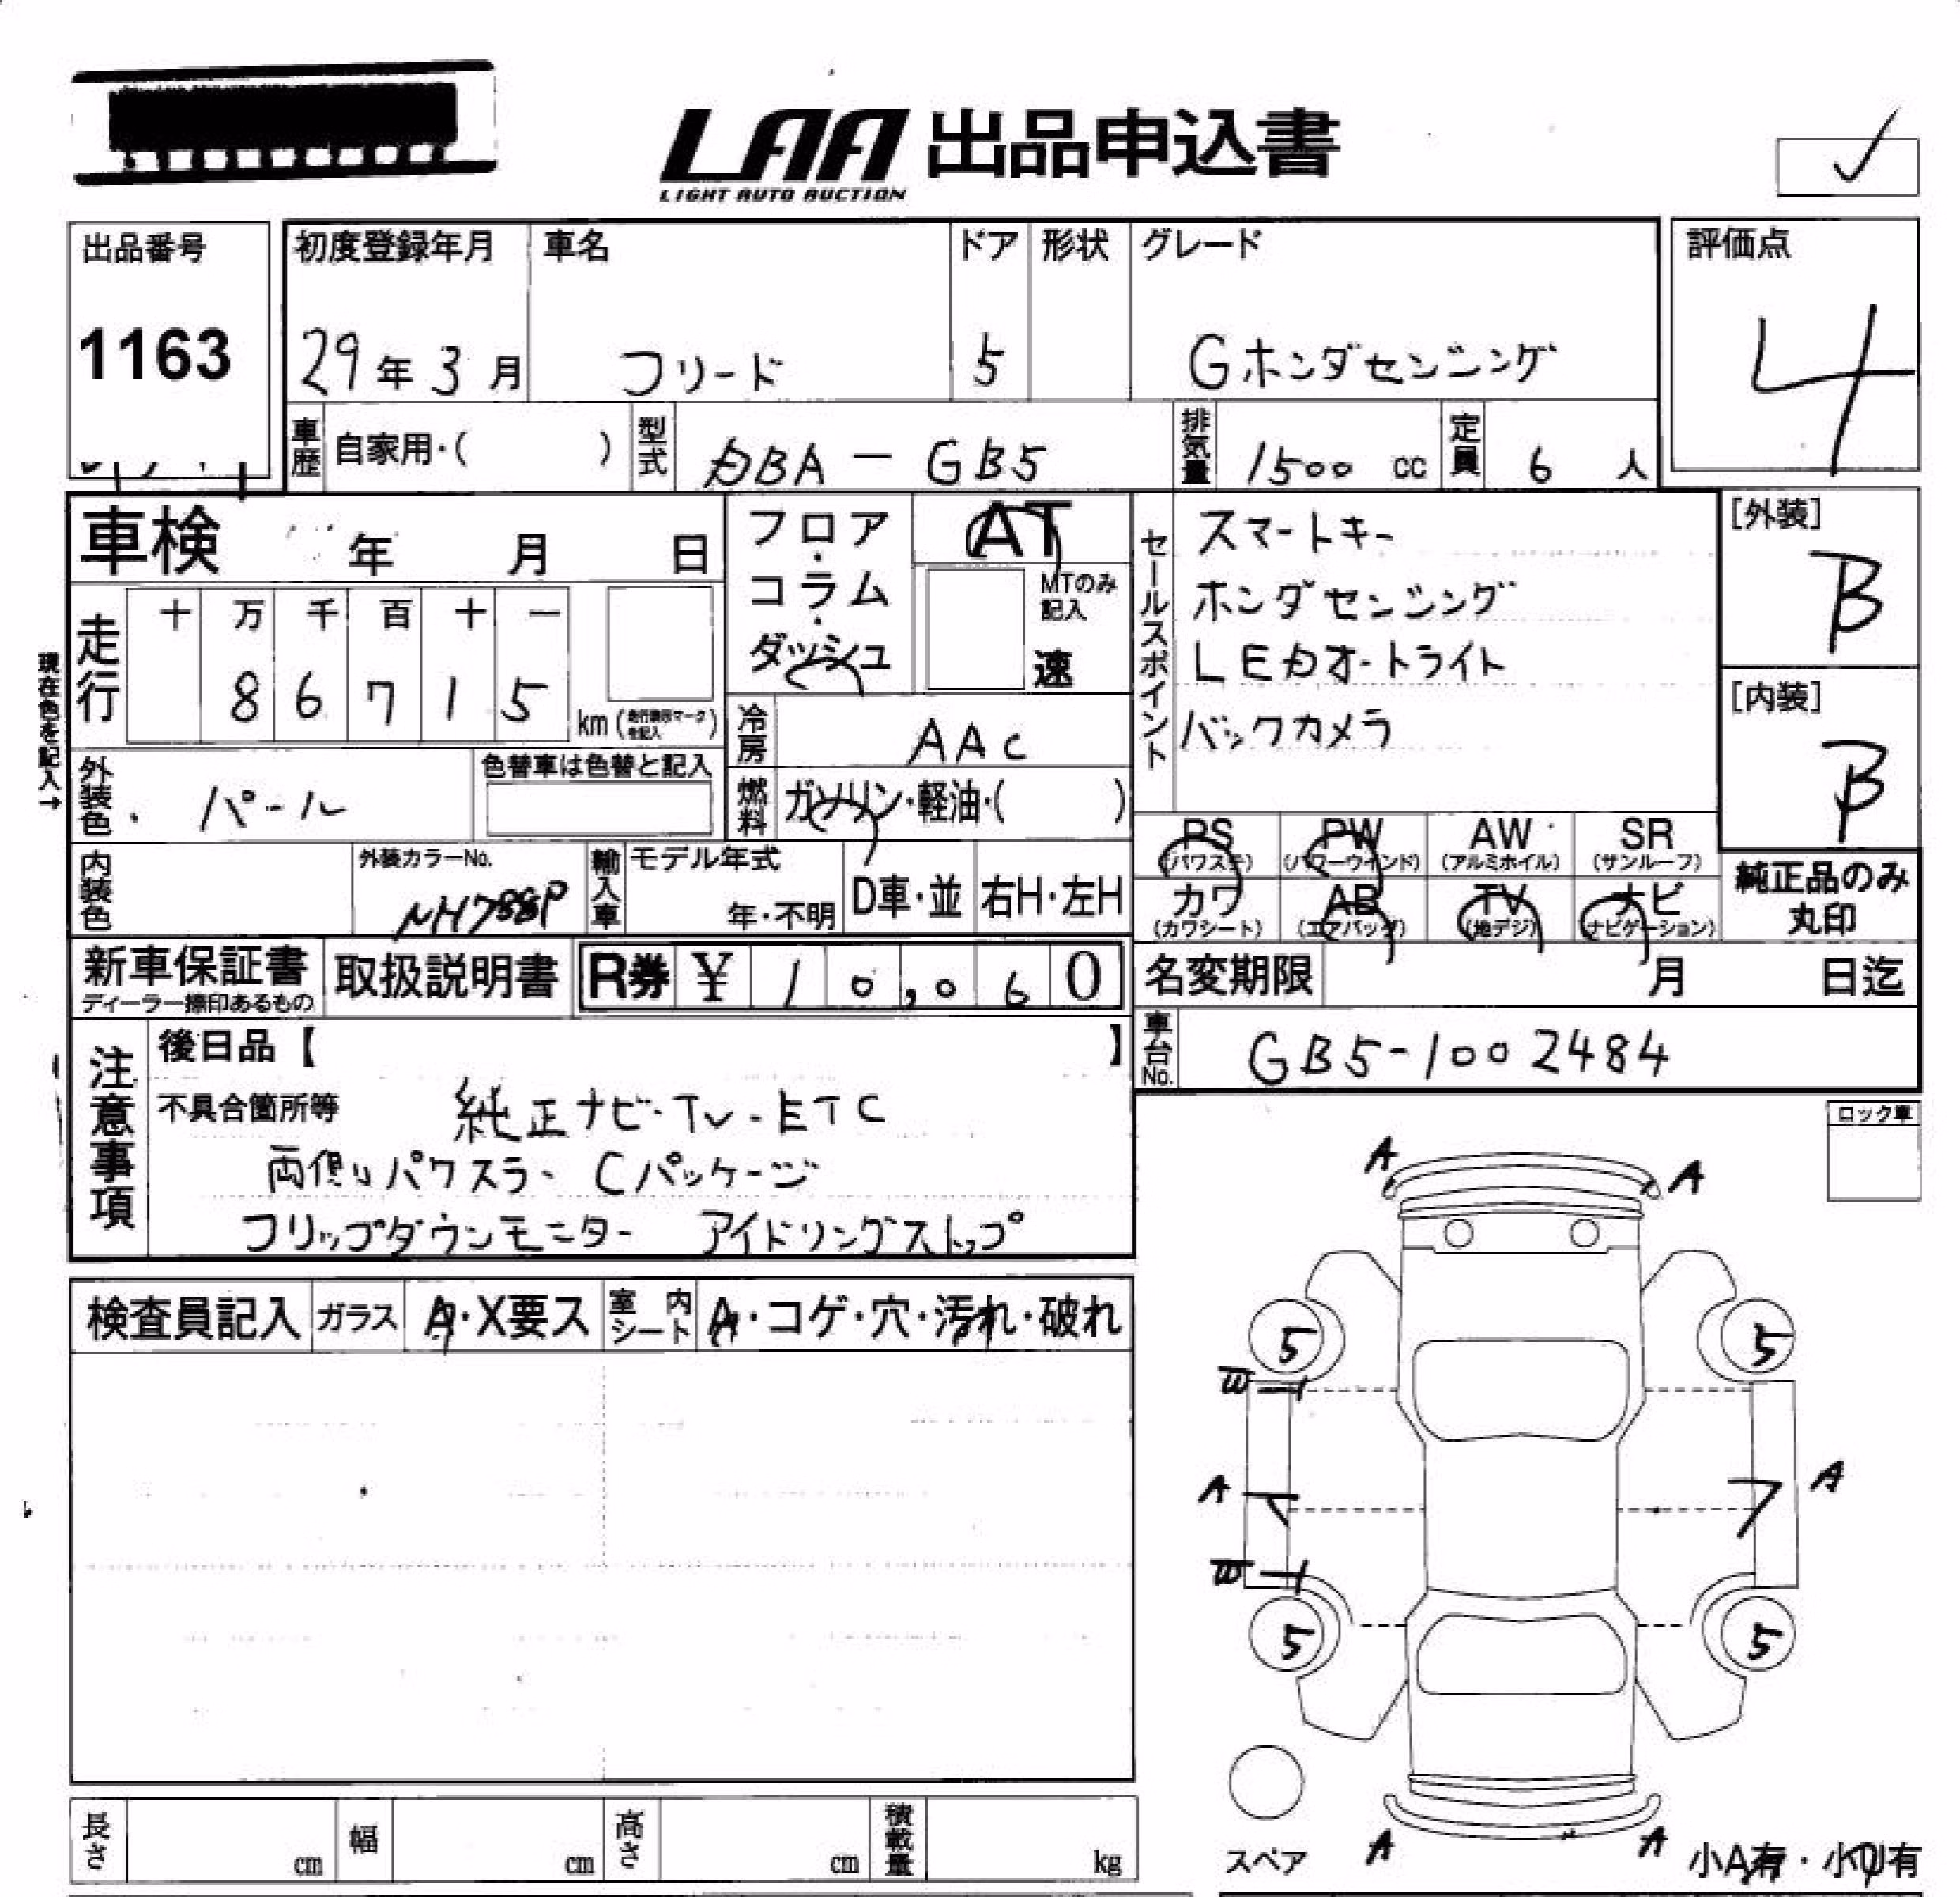 LAA 出品申込書
LIGHT AUTO AUCTION
出品番号
1163
初度登録年月 車名 ドア 形状 グレード
29年 3月 フリード 5 Gホンダセンシング
評価点
4
車歴 自家用・( ) 型式 DBA-GB5 排気量 1500 cc 定員 6 人
車検 年 月 日
フロア・コラム・ダッシュ
AT
MTのみ記入
速
セールスポイント
スマートキー
ホンダセンシング
LEDオートライト
バックカメラ
[外装]
B
[内装]
B
現在色を記入→
走行 十 万 千 百 十 一
8 6 7 1 5 km (走行表示マークを記入)
冷房 AAC
外装色 パール 色替車は色替と記入
燃料 ガソリン・軽油・( )
PS AW SR PW
(パワステ) (パワーウインド) (アルミホイル) (サンルーフ)
カワ AB TV ナビ
(カワシート) (エアバッグ) (地デジ) (ナビゲーション)
純正品のみ丸印
内装色 外装カラーNo. NH788P 輸入車 モデル年式 年・不明 D車・並 右H・左H
新車保証書 取扱説明書 R券 ¥ 10,060
ディーラー捺印あるもの
名変期限 月 日迄
車台No. GB5-1002484
注意事項
後日品【 】
不具合箇所等 純正ナビ・TV・ETC
両側パワスラ・Cパッケージ
フリップダウンモニター アイドリングストップ
ロック車
A A
検査員記入 ガラス A・X要ス 室内シート A・コゲ・穴・汚れ・破れ
5 5
W
A A
W
5 5
スペア A A 小A有・小U有
長さ cm 幅 cm 高さ cm 積載量 kg